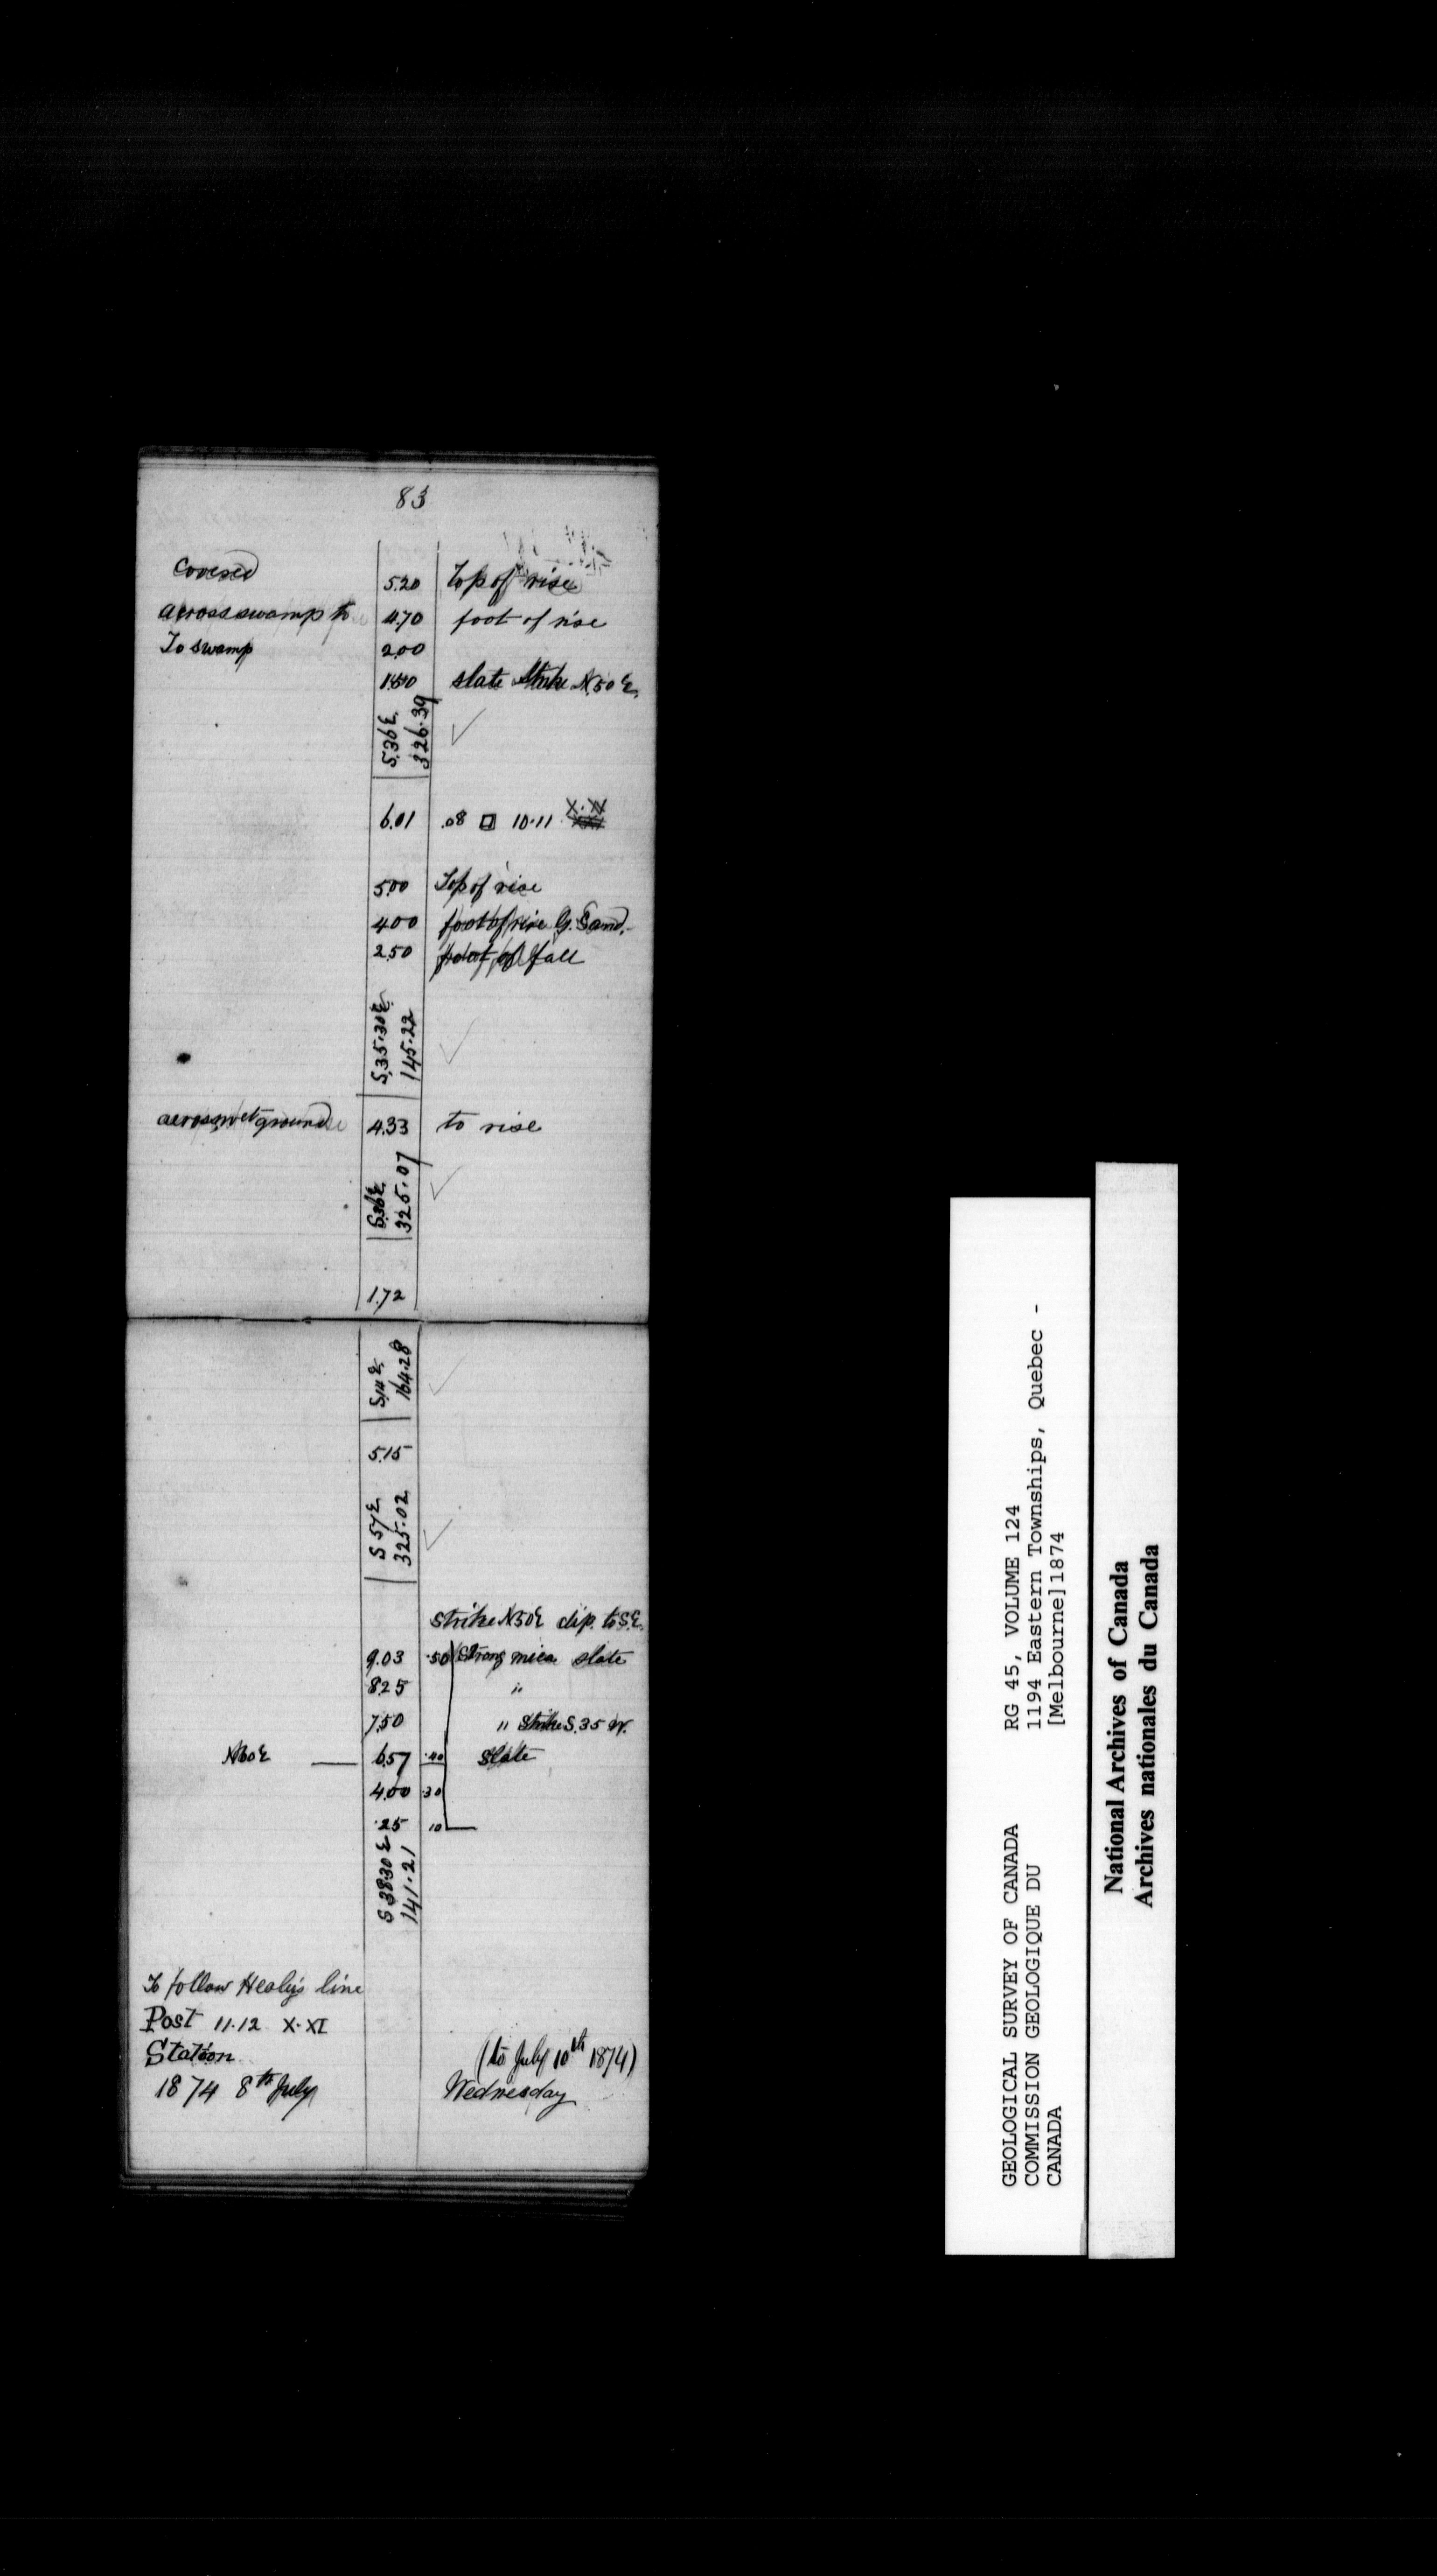 83
Covered 5.20 Top of rise
across swamp to 4.70 foot of rise
To swamp 2.00
1.50 slate Strike N.50 E.
S.36 E.
326.39
6.01 .08 10.11 X.XI
5.00 Top of rise
4.00 foot of rise G. Sand.
2.50 foot of fall
S.35.30 E.
145.22
across wet ground 4.33 to rise
S.36 E.
325.07
1.72
S.14 E.
164.28
5.15
S 57 E.
325.02
strike N50E dip. to S.E.
9.03 .50 Strong mica slate
8.25 "
7.50 " Strike S. 35 W.
N60E 6.57 .40 Slate
4.00 .30
.25 10
S 38.30 E
141.21
To follow Healy's line
Post 11.12 X.XI
Station (to July 10th 1874)
1874 8th July Wednesday
GEOLOGICAL SURVEY OF CANADA
COMMISSION GEOLOGIQUE DU
CANADA
RG 45, VOLUME 124
1194 Eastern Townships, Quebec -
[Melbourne]1874
National Archives of Canada
Archives nationales du Canada